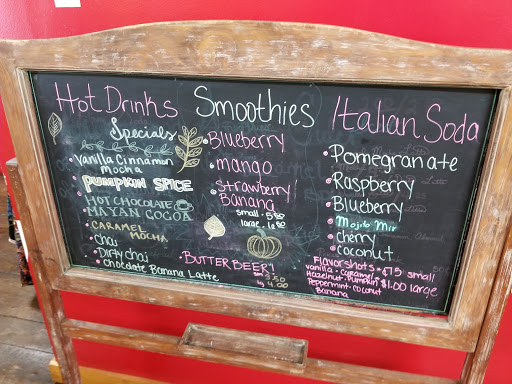 Hot Drinks
Specials
Vanilla Cinnamon
mocha
PUMPKIN SPICE
HOT CHOCOLATE
MAYAN COCOA
CARAMEL
MOCHA
chai
Dirty chai
Chocolate Banana Latte
Smoothies
Blueberry
mango
Strawberry/
Banana
small - 5.50
large
BUTTERBEER!
3.50
4.00
Italian Soda
Pomegranate
Raspberry
Blueberry
Mojito Mix
cherry
coconut
Flavorshots - $.75 small
vanilla - caramel
Hazelnut - Pumpkin $1.00 large
Peppermint - coconut
Banana